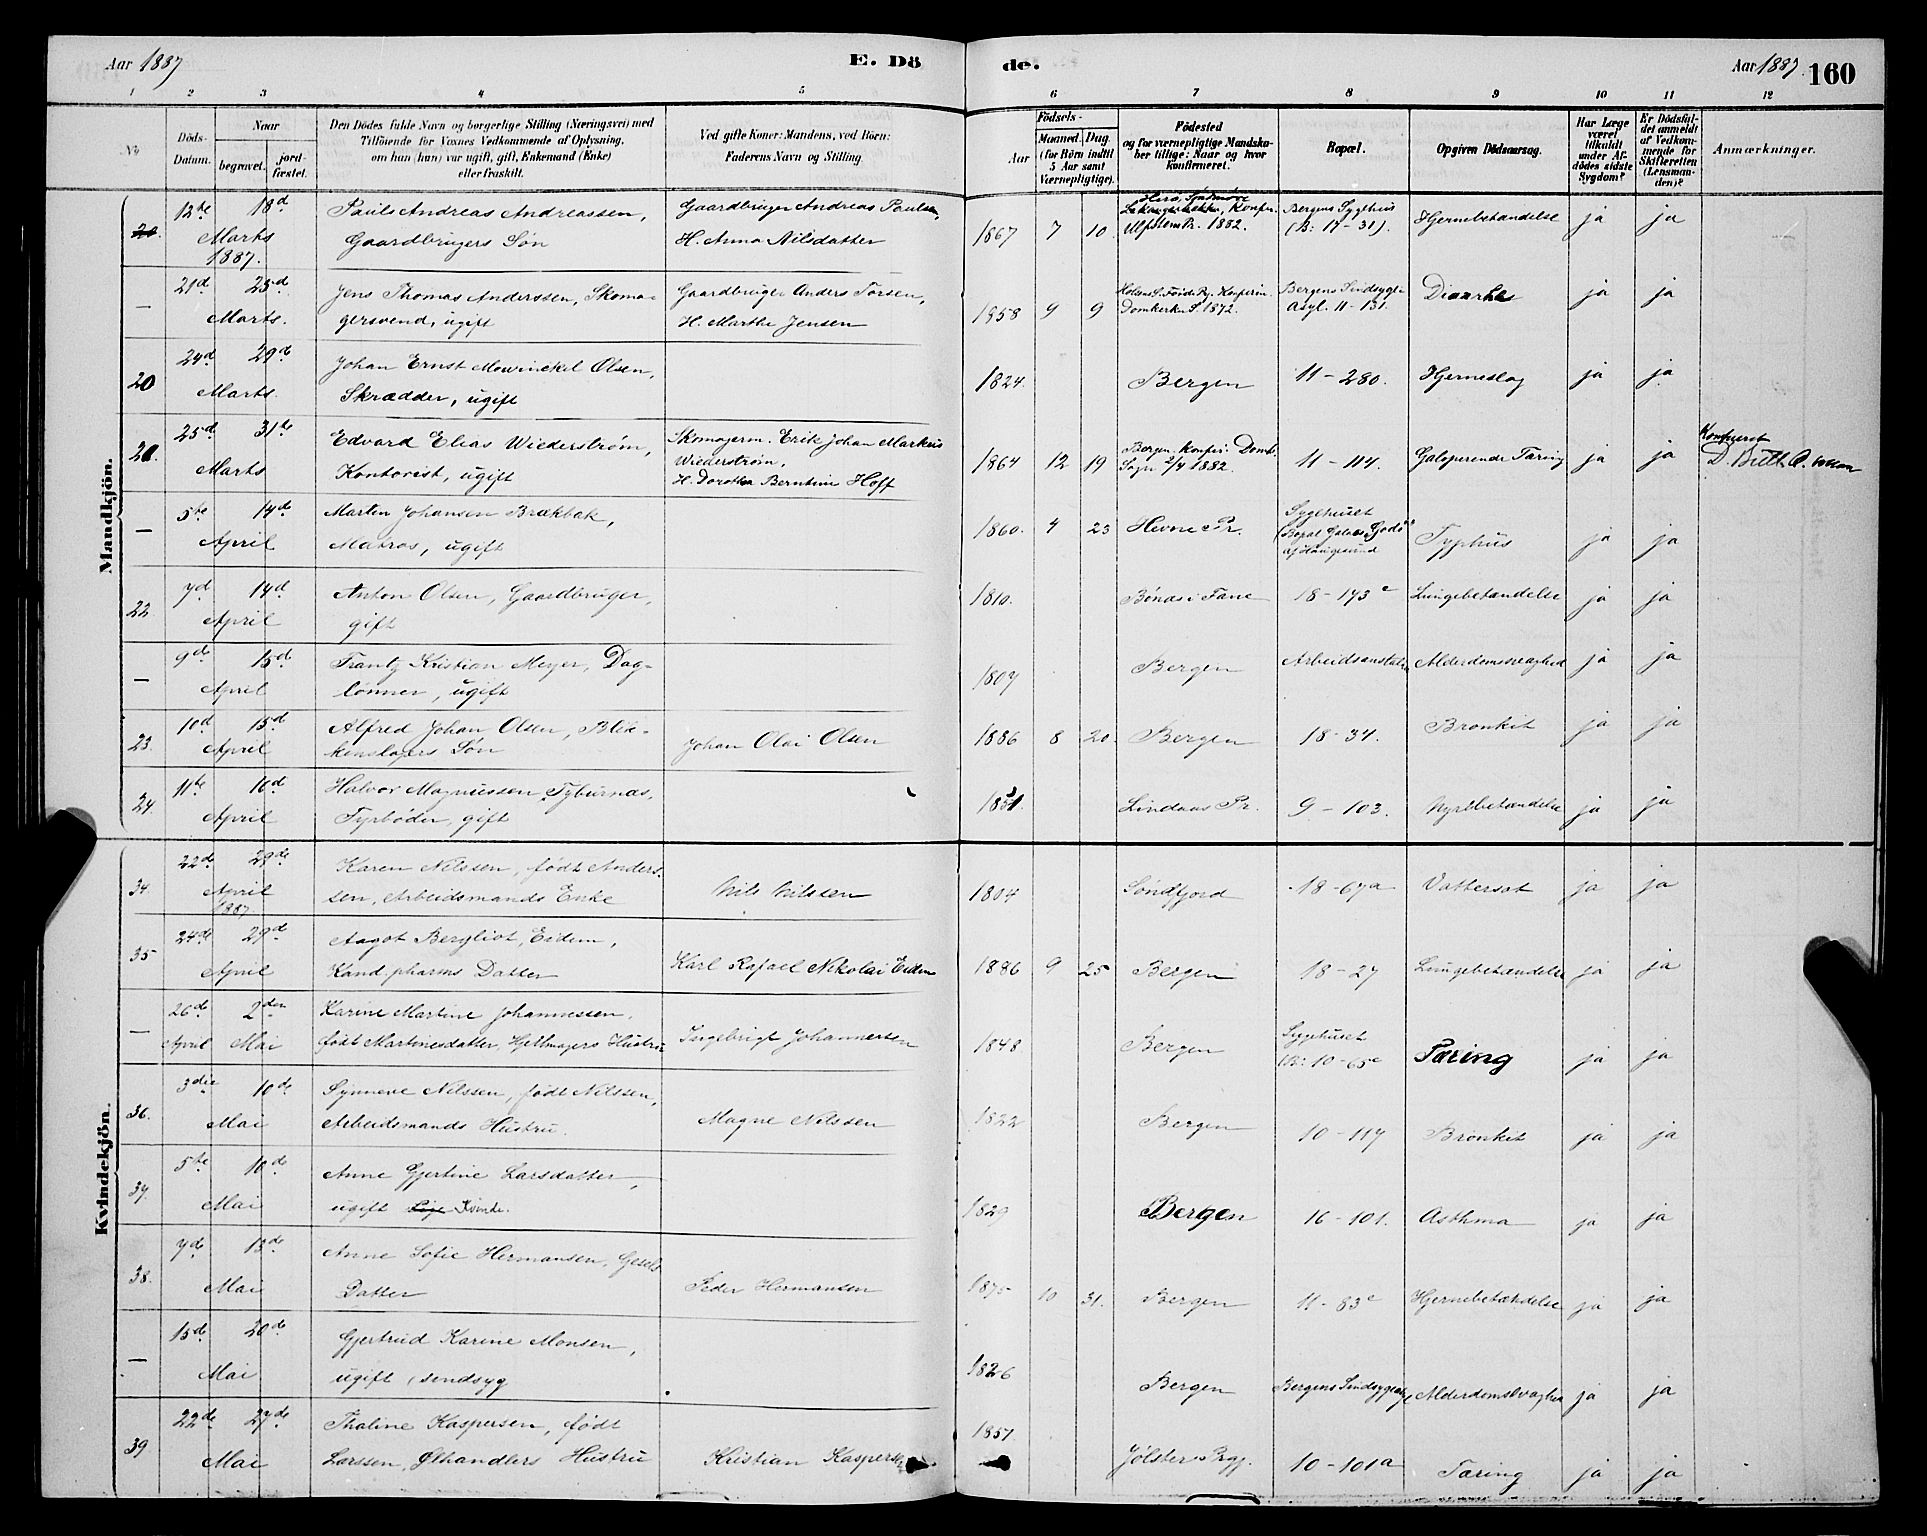 Aar 1887 E. Dö de. Aar 1887. 160
1 2 3 4 5 6 7 8 9 10 11 12
No
Döds-Datum.
Naar
begravet.
jord-fæstet.
Den Dödes fulde Navn og borgerlige Stilling (Næringsvei) med
Tilföiende for Voxnes Vedkommende af Oplysning,
om han (hun) var ugift, gift, Enkemand (Enke)
eller fraskilt.
Ved gifte Koner: Mandens, ved Börn:
Faderens Navn og Stilling.
Födsels-
Aar
Maaned. Dag.
(for Börn indtil
5 Aar samt
Værnepligtige).
Födested
og for værnepligtige Mandska-
ber tillige: Naar og hvor
konfirmeret.
Bopæl.
Opgiven Dödsaarsag.
Har Læge
været
tilkaldt
under Af-
dödes sidste
Sygdom?
Er Dödsfal-
det anmeldt
af Vedkom-
mende for
Skifteretten
(Lensman-
den)?
Anmærkninger.
Mandkjön.
12te 18d Pauls Andreas Andreassen, Gaardbruger Andreas Paulsen,
Marts 1887. Gaardbrugers Søn H. Anna Nilsdatter
1867 7 10 Konfir. 1882. Bergens Sygehus (B: 17-31). Hjernebetændelse ja ja
— 21d 25d Jens Thomas Anderssen, Skoma- Gaardbruger Anders Torsen,
Marts. gersvend, ugift H. Marthe Jensen
1858 9 9 Konfirm. Domkirken 1872. Bergens Sindsyge Asyl. 11-131. Diaarhe ja ja
20 24d 29de Johan Ernst Mowinckel Olsen,
Marts. Skrædder, ugift
1824. Bergen 11-280. Hjerneslag ja ja
21. 25d 31te Edvard Elias Wiederstrøm, Skomagerm. Erik Johan Markus
Marts Kontorist, ugift Wiederstrøm,
H. Dorothea Berntine Hoff
1864 12 19 Bergen. Konfir. Domk. Sogn 2/4 1882. 11-114. Galoperende Tæring ja ja
— 5te 14de Martin Johansen Brækbak,
April Matros, ugift
1860. 4 23 Hevne Pr. Sygehuset af Haugesund Typhus ja ja
22 7d 14d Anton Olsen, Gaardbruger,
April gift
1810. Bønæs i Fane 18-173c Lungebetændelse ja ja
— 9de 15de Frantz Kristian Meyer, Dag-
April lønner, ugift
1807 Bergen Arbeidsanstalten Alderdomssvaghed ja ja
23. 10d 15d Alfred Johan Olsen, Blik-
April kenslagers Søn Johan Olai Olsen
1886 8 20 Bergen 18-34. Bronkit ja ja
24. 11te 16d Halvor Magnussen Tyburnæs,
April Fyrbøder, gift
Lindaas Pr. 9-103. Nyrebetændelse ja ja
Kvindekjön.
34. 22de 29de Karen Nilssen, født Anders-
April 1887. sen, Arbeidsmands Enke Nils Nilssen
1804 Søndfjord 18-67a Vattersot ja ja
35 24de 29d Aagot Bergliot Eidem,
April Kand. pharms Datter Karl Rafael Nikolai Eidem
1886 9 25 Bergen 18-27 Lungebetændelse ja ja
— 26de 2den Karine Martine Johannessen,
April Mai født Martinesdatter, Hjulmagers Hustru Ingebrigt Johannessen
1848. Bergen Sygehuset (B: 10-65c Tæring ja ja
36. 3die 10de Synneve Nilssen, født Nilssen,
Mai Arbeidsmands Hustru. Magne Nilssen
1822 Bergen 10-117 Bronkit ja ja
37. 5te 10de Anne Gjertine Larsdatter,
Mai ugift Pige Kvinde.
1829 Bergen 16-101. Asthma ja ja
38. 7de 13de Anne Sofie Hermansen, Gesels
Mai Datter Peder Hermansen
1875 10 31. Bergen 11-83c Hjernebetændelse ja ja
— 15de 20de Gjertrud Karine Monsen,
Mai ugift, sindsyg
1826 Bergen Bergens Sindsygeasyl Alderdomssvaghed ja ja
39 22de 27de Thaline Kaspersen, født
Mai Larssen, Ølhandlers Hustru Kristian Kaspersen
1857. Jølster Prgj. 10-101a Tæring ja ja